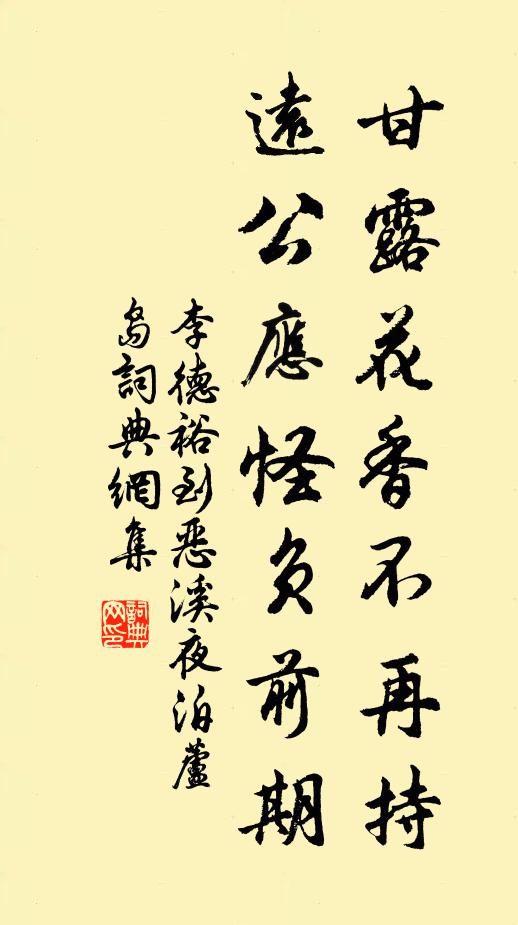 甘露花香不再持
遠公應怪負前期
李德裕到惡溪夜泊蘆
島詞典網集
詞典
网印